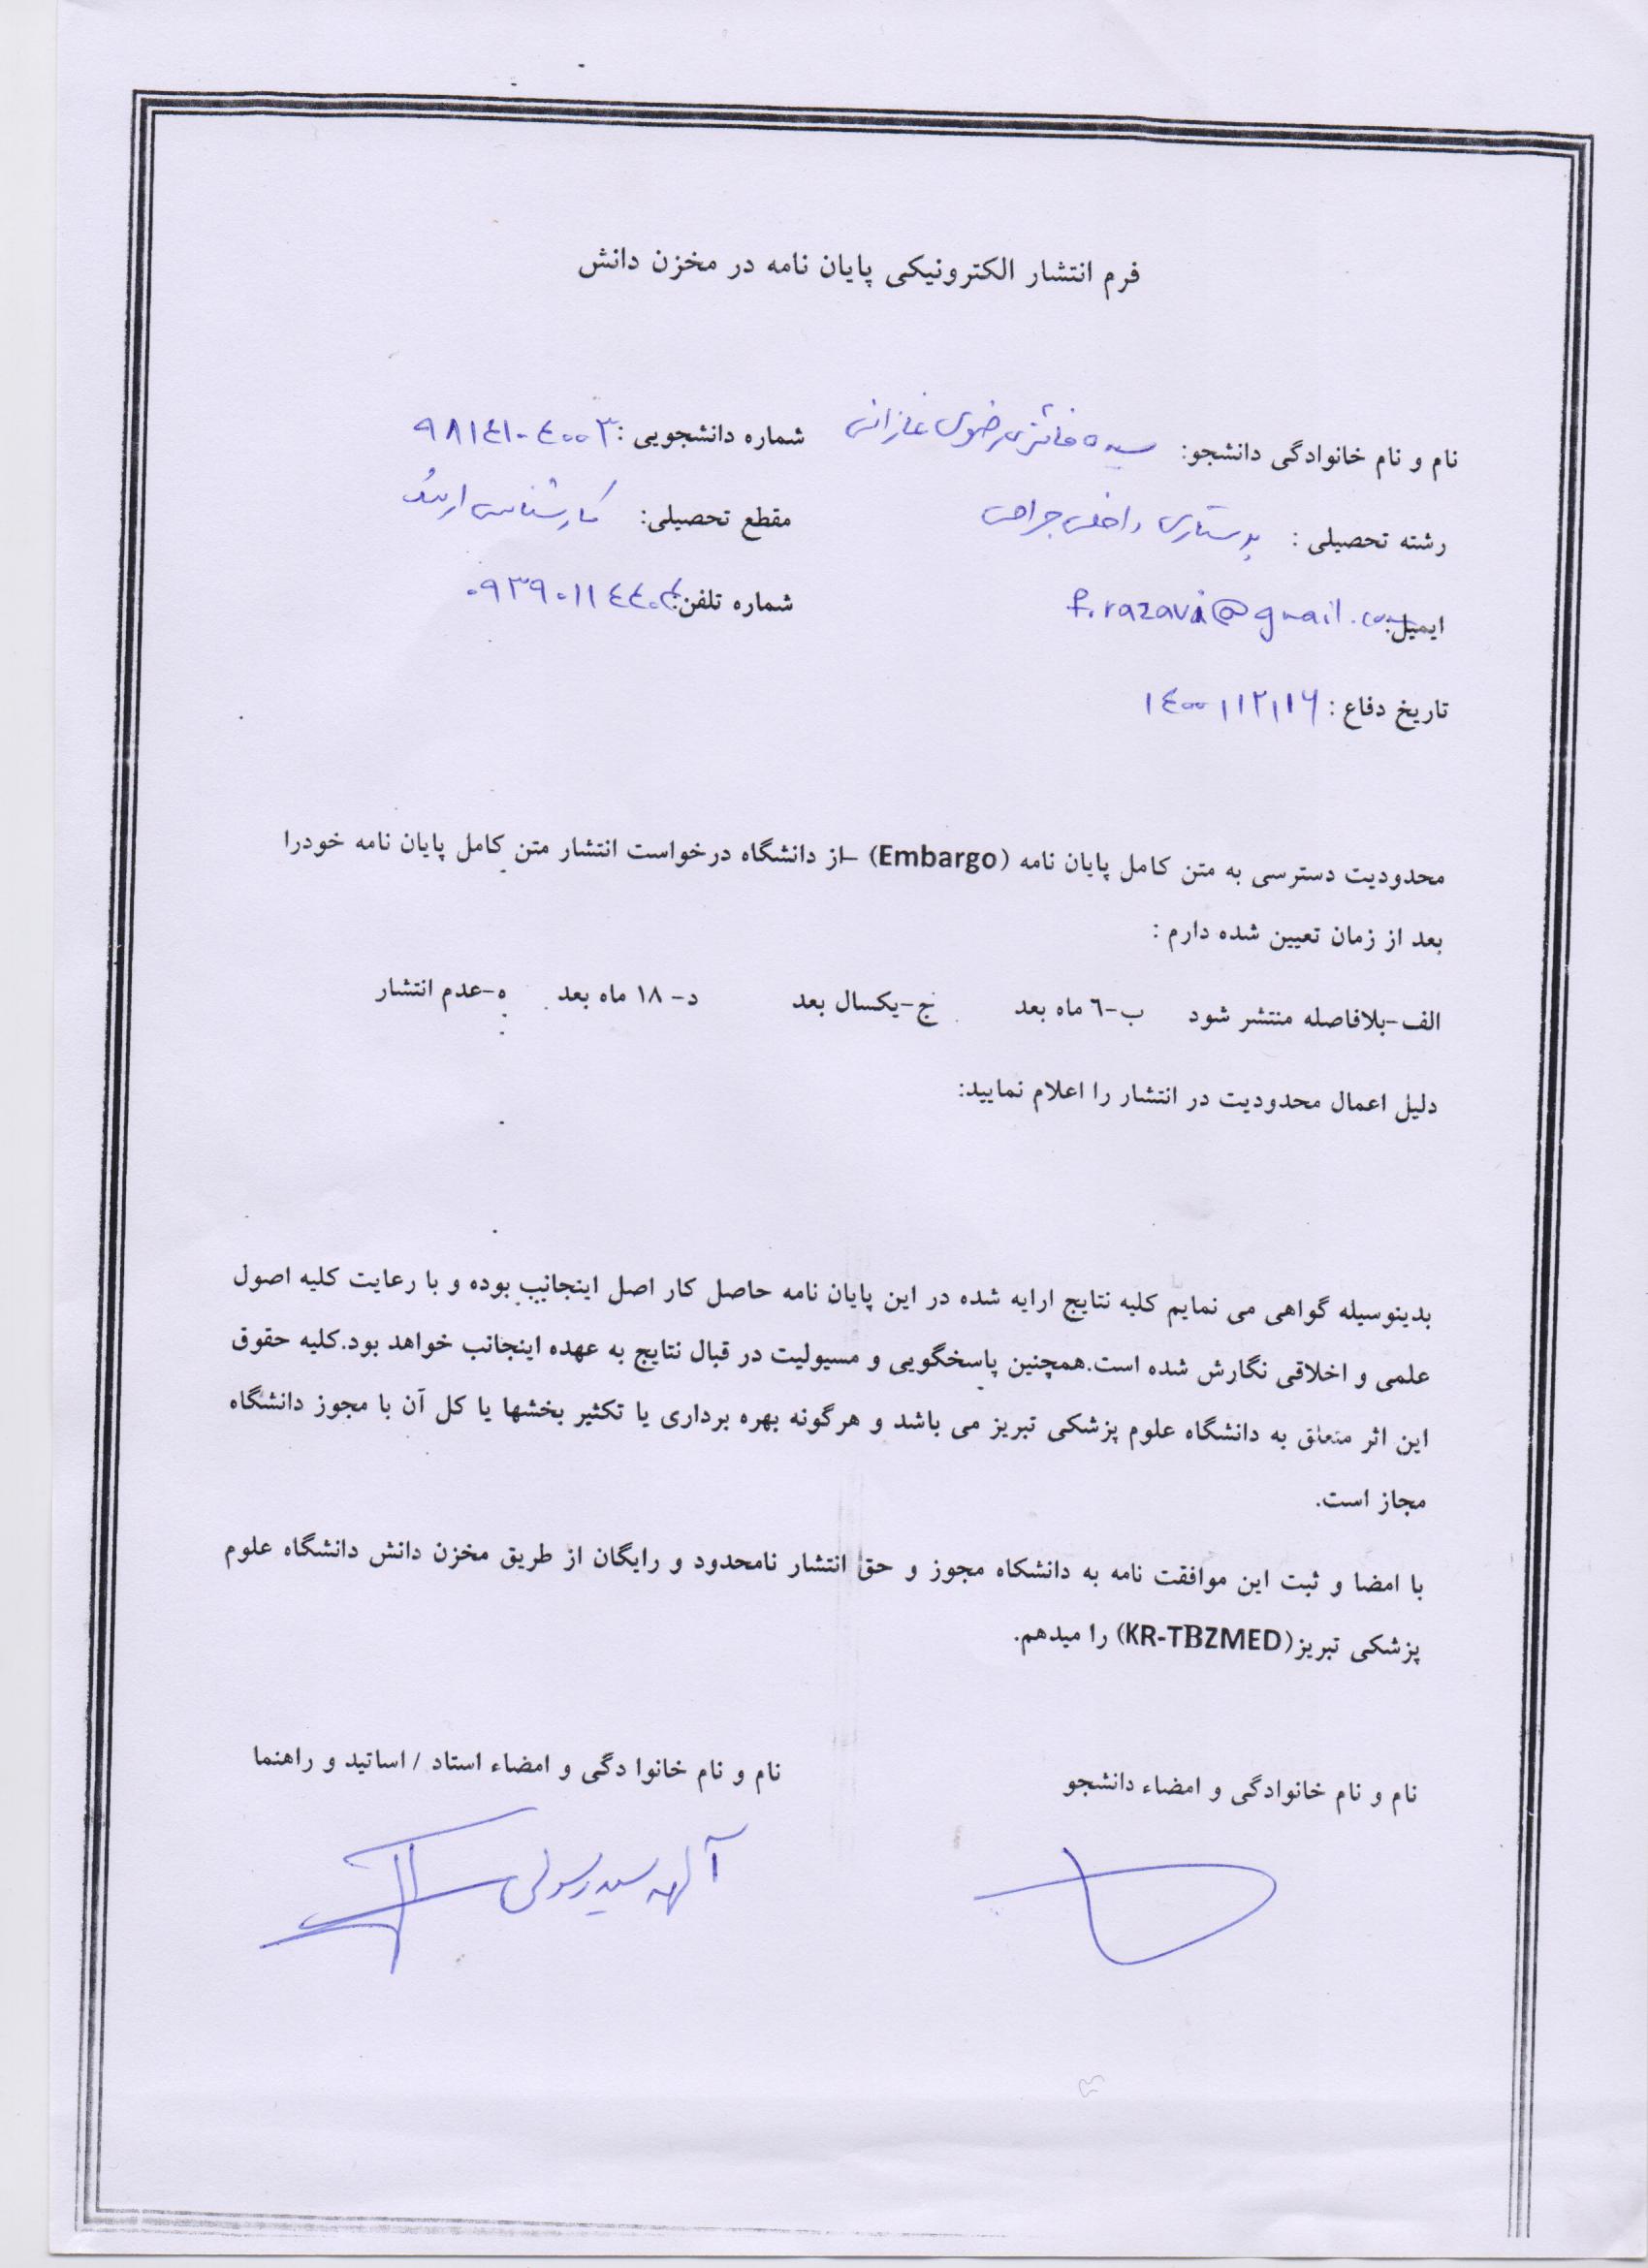 فرم انتشار الکترونیکی پایان نامه در مخزن دانش
نام و نام خانوادگی دانشجو: سیده فائزه رضوی غازانی شماره دانشجویی :۹۸۱٤۱۰٤۰۰۳
رشته تحصیلی : پرستاری داخلی جراحی مقطع تحصیلی: کارشناسی ارشد
ایمیل: f.razavi@gmail.com شماره تلفن:
تاریخ دفاع : ۱٤۰۰/۱۲/۱۶
محدودیت دسترسی به متن کامل پایان نامه (Embargo) –از دانشگاه درخواست انتشار متن کامل پایان نامه خودرا
بعد از زمان تعیین شده دارم :
الف-بلافاصله منتشر شود ب-٦ ماه بعد ج-یکسال بعد د- ۱۸ ماه بعد ه-عدم انتشار
دلیل اعمال محدودیت در انتشار را اعلام نمایید:
بدینوسیله گواهی می نمایم کلیه نتایج ارایه شده در این پایان نامه حاصل کار اصل اینجانب بوده و با رعایت کلیه اصول
علمی و اخلاقی نگارش شده است.همچنین پاسخگویی و مسیولیت در قبال نتایج به عهده اینجانب خواهد بود.کلیه حقوق
این اثر متعلق به دانشگاه علوم پزشکی تبریز می باشد و هرگونه بهره برداری یا تکثیر بخشها یا کل آن با مجوز دانشگاه
مجاز است.
با امضا و ثبت این موافقت نامه به دانشکاه مجوز و حق انتشار نامحدود و رایگان از طریق مخزن دانش دانشگاه علوم
پزشکی تبریز(KR-TBZMED) را میدهم.
نام و نام خانوادگی و امضاء دانشجو نام و نام خانوا دگی و امضاء استاد / اساتید و راهنما
آلهه سید رسولی